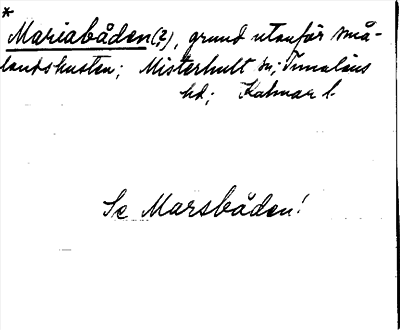 *
Mariabåden(?), grund utanför små-
landskusten; Misterhult sn; Tunaläns
hd; Kalmar l.
Se Marsbåden!